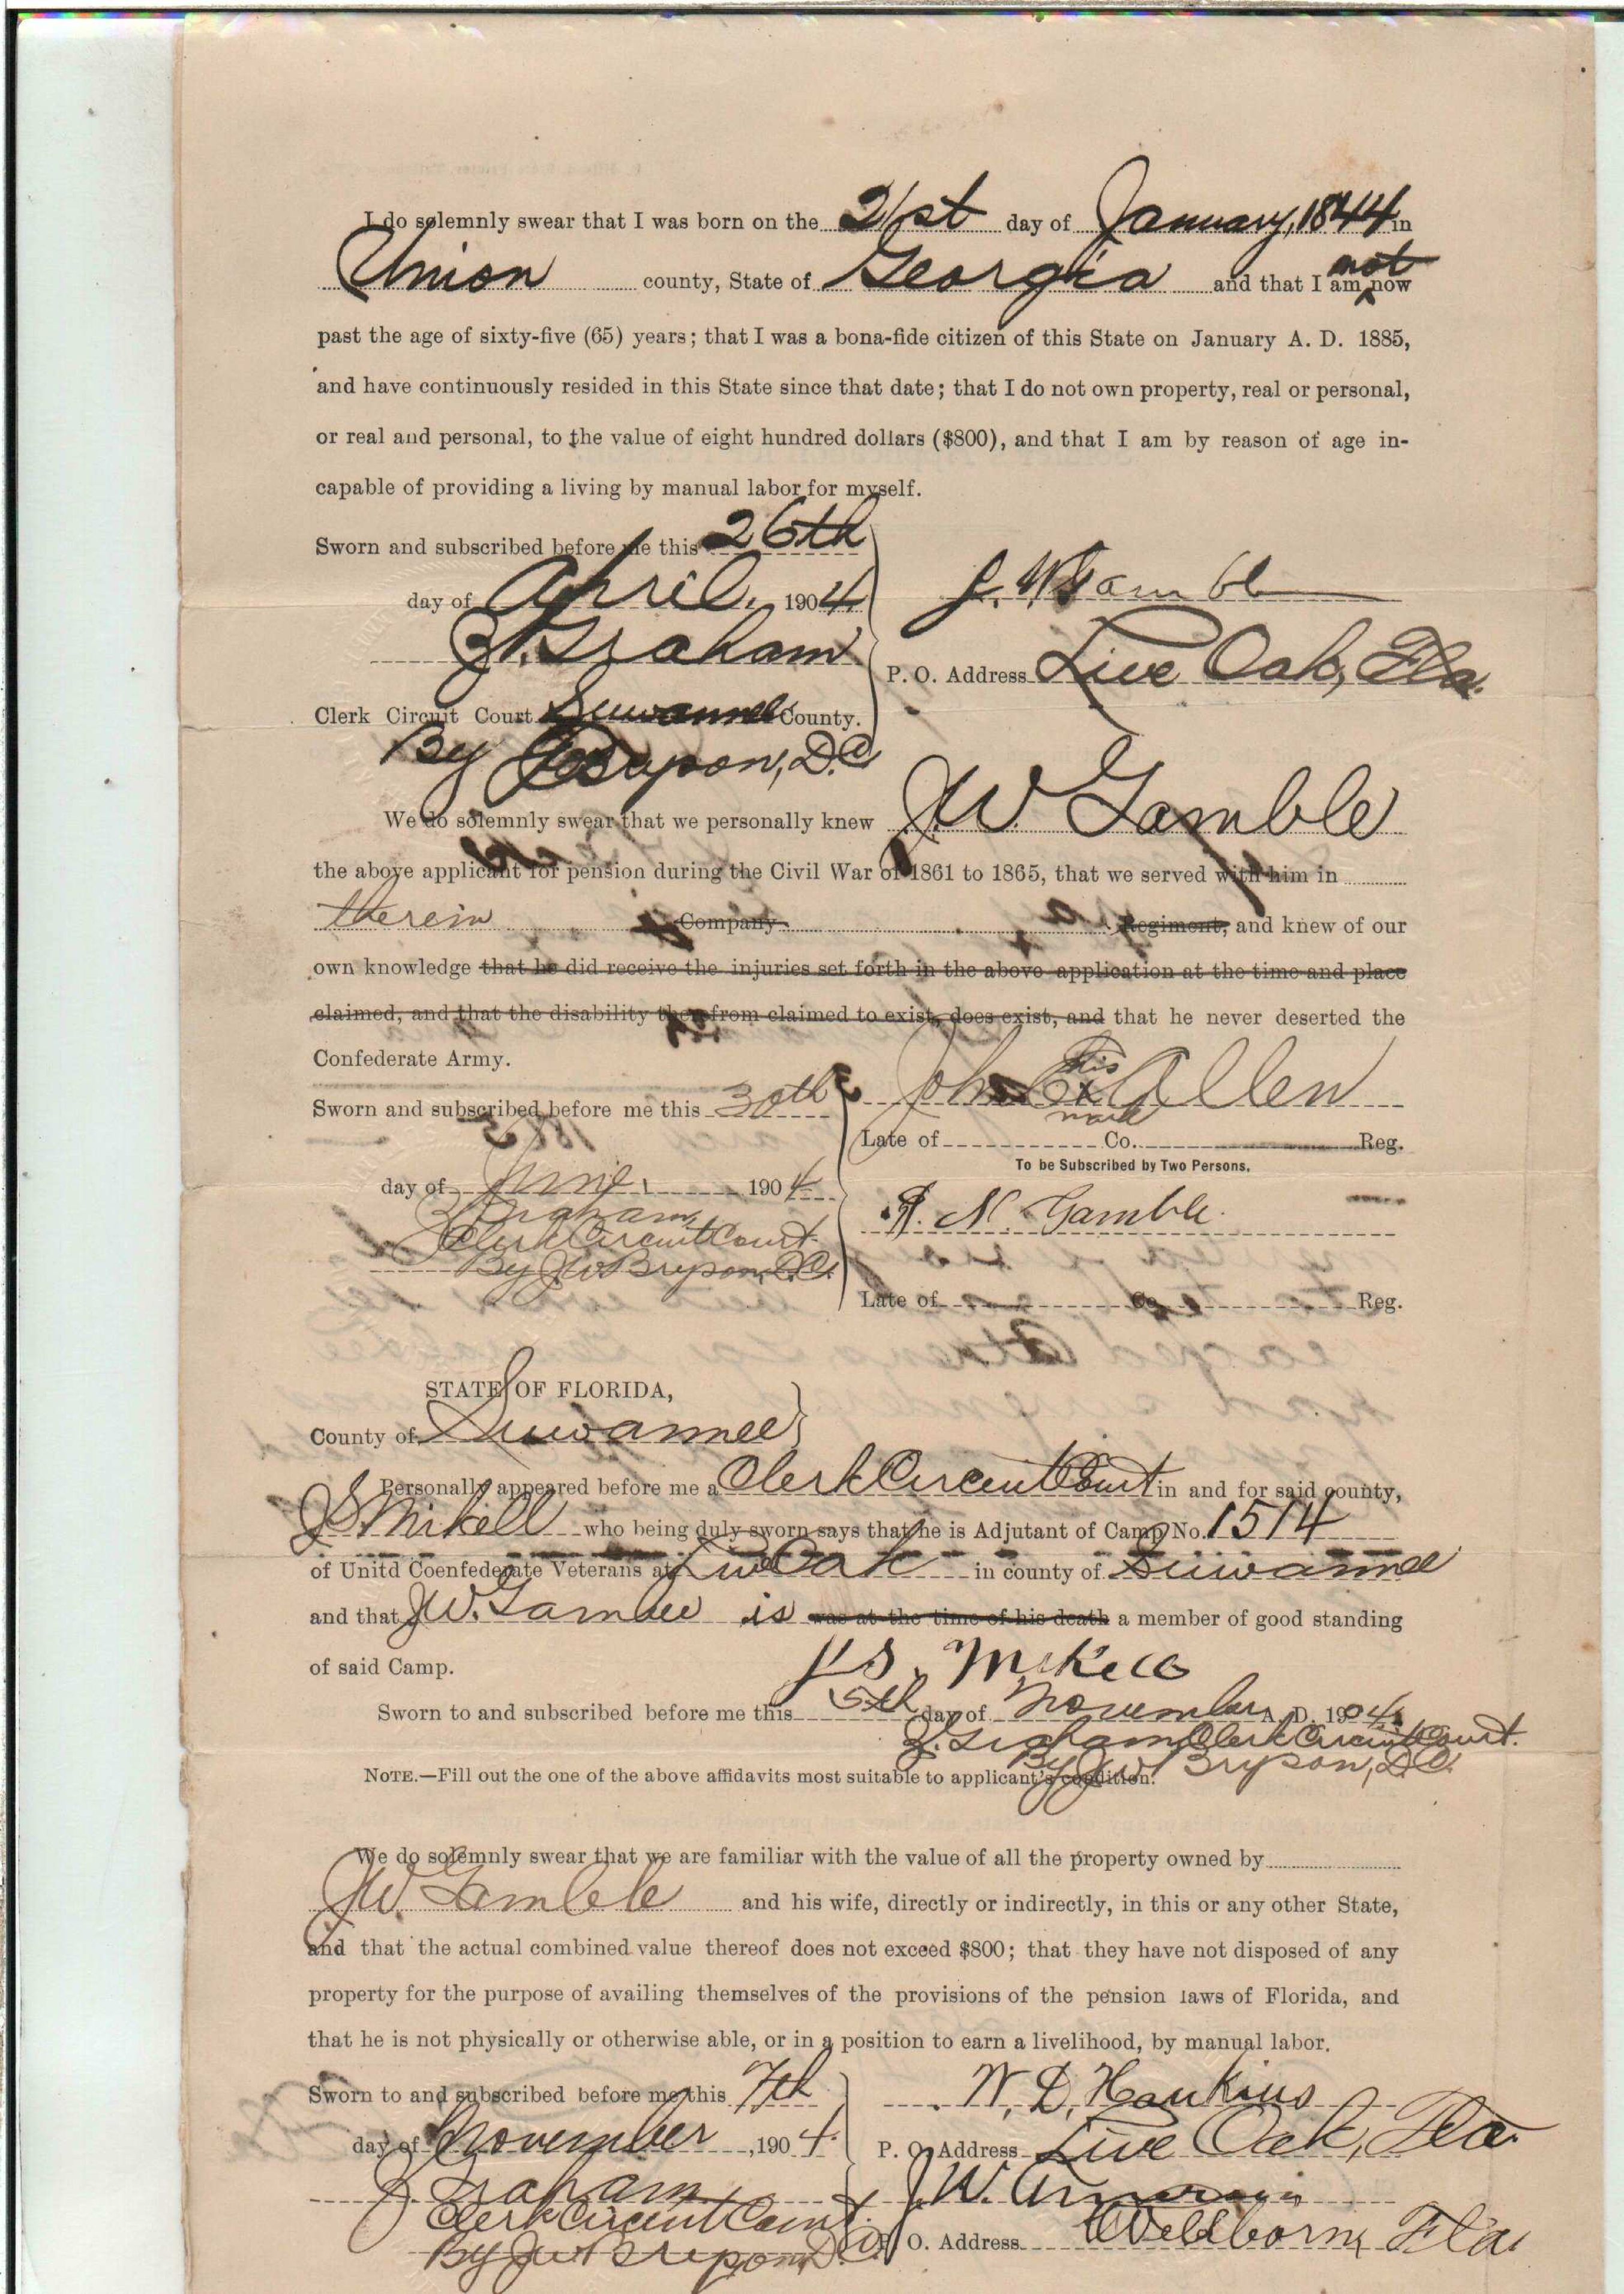 I do solemnly swear that I was born on the 21st day of January, 1844 in
Union county, State of Georgia and that I am not now
past the age of sixty-five (65) years; that I was a bona-fide citizen of this State on January A. D. 1885,
and have continuously resided in this State since that date; that I do not own property, real or personal,
or real and personal, to the value of eight hundred dollars ($800), and that I am by reason of age in-
capable of providing a living by manual labor for myself.
Sworn and subscribed before me this 26th
day of April, 1904
J. W. Gamble
Graham
P. O. Address Live Oak, Fla.
Clerk Circuit Court Suwannee County.
By Bryson, D.C.
We do solemnly swear that we personally knew J W Gamble
the above applicant for pension during the Civil War of 1861 to 1865, that we served with him in
therein Company Regiment, and knew of our
own knowledge that he did receive the injuries set forth in the above application at the time and place
claimed, and that the disability therefrom claimed to exist, does exist, and that he never deserted the
Confederate Army.
Sworn and subscribed before me this 30th
John his x mark Allen
Late of Co. Reg.
To be Subscribed by Two Persons.
day of June, 1904
Graham
Clerk Circuit Court
By J W Bryson, D.C.
N. Gamble
Late of Co. Reg.
STATE OF FLORIDA,
County of Suwannee
Personally appeared before me a Clerk Circuit Court in and for said county,
J S. Mikell who being duly sworn says that he is Adjutant of Camp No. 1514
of Unitd Coenfederate Veterans at Live Oak in county of Suwannee
and that J W. Gamble is was at the time of his death a member of good standing
of said Camp.
J S. Mikell
Sworn to and subscribed before me this 5th day of November A. D. 1904
Graham, Clerk Circuit Court.
By J W Bryson, D.C.
NOTE.—Fill out the one of the above affidavits most suitable to applicant's condition.
We do solemnly swear that we are familiar with the value of all the property owned by
J W. Gamble and his wife, directly or indirectly, in this or any other State,
and that the actual combined value thereof does not exceed $800; that they have not disposed of any
property for the purpose of availing themselves of the provisions of the pension laws of Florida, and
that he is not physically or otherwise able, or in a position to earn a livelihood, by manual labor.
Sworn to and subscribed before me this 7th
W. D. Hankins
day of November, 1904.
P. O. Address Live Oak, Fla.
Graham
Clerk Circuit Court.
By J W Bryson, D.C.
J W.
P. O. Address Wellborn, Fla